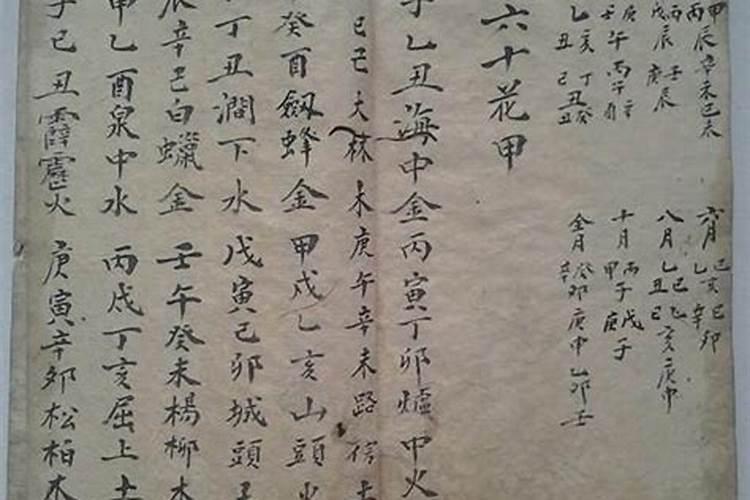 甲辰辛未己未
丙
丙壬
戊辰庚辰
乙亥丁癸
丑己丑丑
八月乙巳乙
乙丑己亥庚申
十月丙戊
甲子庚子
癸卯庚申乙卯壬
六十花甲
子乙丑海中金丙寅丁卯爐中火
巳大林木庚午辛未路傍土
癸酉劔蜂金甲戌乙亥山頭火
丁丑澗下水戊寅己卯城頭土
辰辛巳白蠟金壬午癸未楊柳木
甲乙酉泉中水丙戌丁亥屈上土
子己丑霹靂火庚寅辛卯松柏木